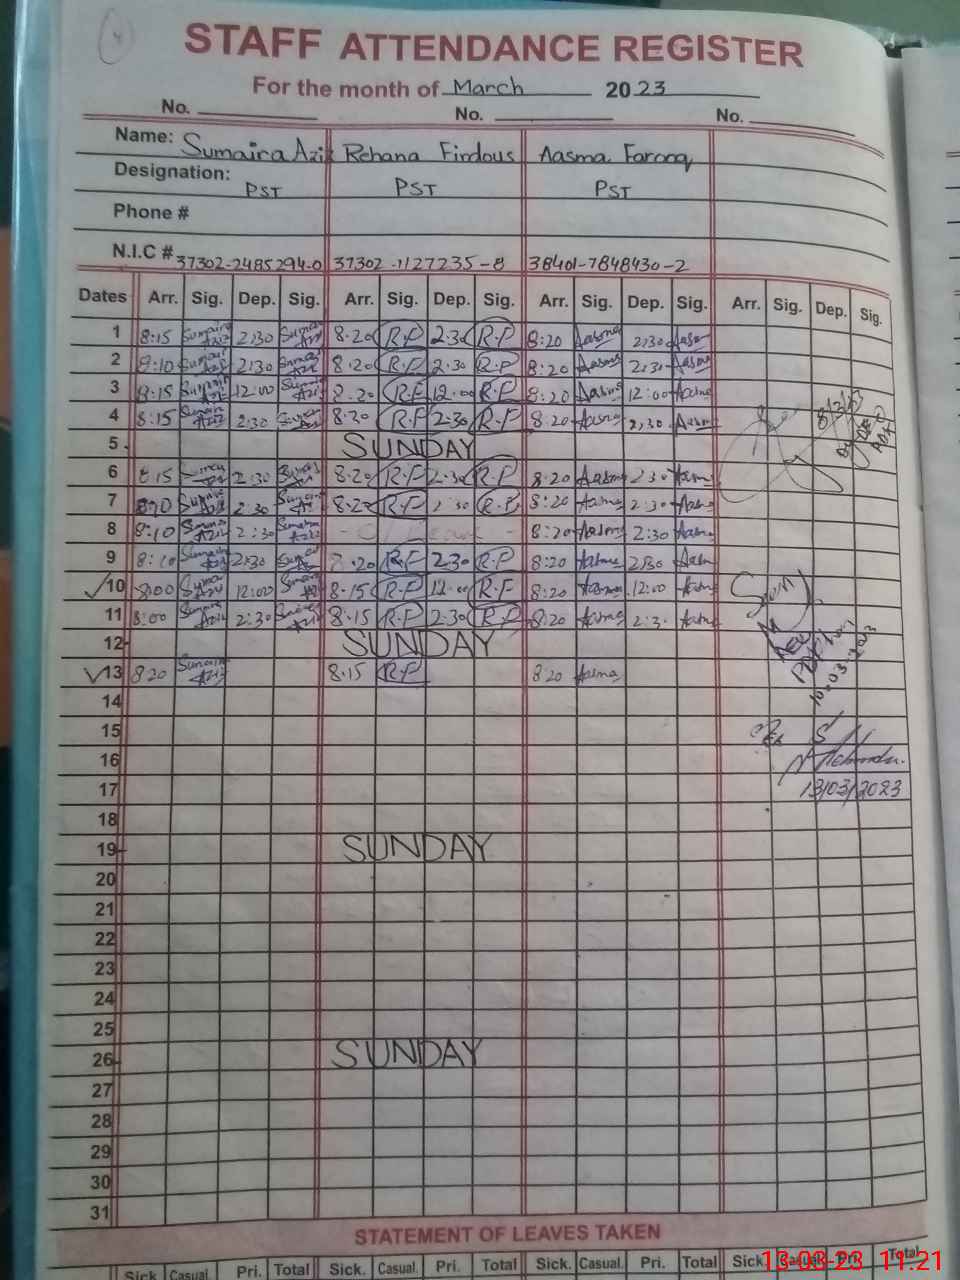 STAFF ATTENDANCE REGISTER
For the month of March 2023
No. No. No.
Name: Sumaira Aziz Rehana Firdous Aasma Farooq
Designation: PST PST PST
Phone #
N.I.C # 37302-2485294-0 37302-1127235-8 38401-7848430-2
Dates Arr. Sig. Dep. Sig. Arr. Sig. Dep. Sig. Arr. Sig. Dep. Sig. Arr. Sig. Dep. Sig.
1 8:15 Sumaira Aziz 2:30 Sumaira Aziz 8.20 R.F 2.30 R.F 8:20 Aasma 2:30 Aasma
2 8:10 Sumaira Aziz 2:30 Sumaira Aziz 8.20 R.F 2.30 R.F 8:20 Aasma 2:30 Aasma
3 8:15 Sumaira Aziz 12:00 Sumaira Aziz 8.20 R.F 12.00 R.F 8:20 Aasma 12:00 Aasma
4 8:15 Sumaira Aziz 2:30 Sumaira Aziz 8.20 R.F 2.30 R.F 8:20 Aasma 2:30 Aasma
8/3/23
5 SUNDAY
6 8:15 2:30 8.20 R.F 2.30 R.F 8:20 Aasma 2:30 Aasma
7 Sumaira Aziz 2:30 Sumaira Aziz 8.20 R.F 2.30 R.F 8:20 Aasma 2:30 Aasma
8 8:10 Sumaira Aziz 2:30 Sumaira Aziz Leave 8:20 Aasma 2:30 Aasma
9 8:10 Sumaira Aziz 2:30 Sumaira 8.20 R.F 2.30 R.F 8:20 Aasma 2:30 Aasma
10 8:00 Sumaira Aziz 12:00 Sumaira Aziz 8.15 R.F 12.00 R.F 8:20 Aasma 12:00 Aasma
11 8:00 Sumaira Aziz 2:30 Sumaira Aziz 8.15 R.F 2.30 R.F 8:20 Aasma 2:30 Aasma
12 SUNDAY
AEO
10-03-2023
13 8:20 Sumaira Aziz 8.15 R.F 8:20 Aasma
14
15
16
17 13/03/2023
18
19 SUNDAY
20
21
22
23
24
25
26 SUNDAY
27
28
29
30
31
STATEMENT OF LEAVES TAKEN
Sick Casual. Pri. Total Sick. Casual. Pri. Total Sick. Casual. Pri. Total Sick. Casual. Pri. Total
13-03-23 11:21